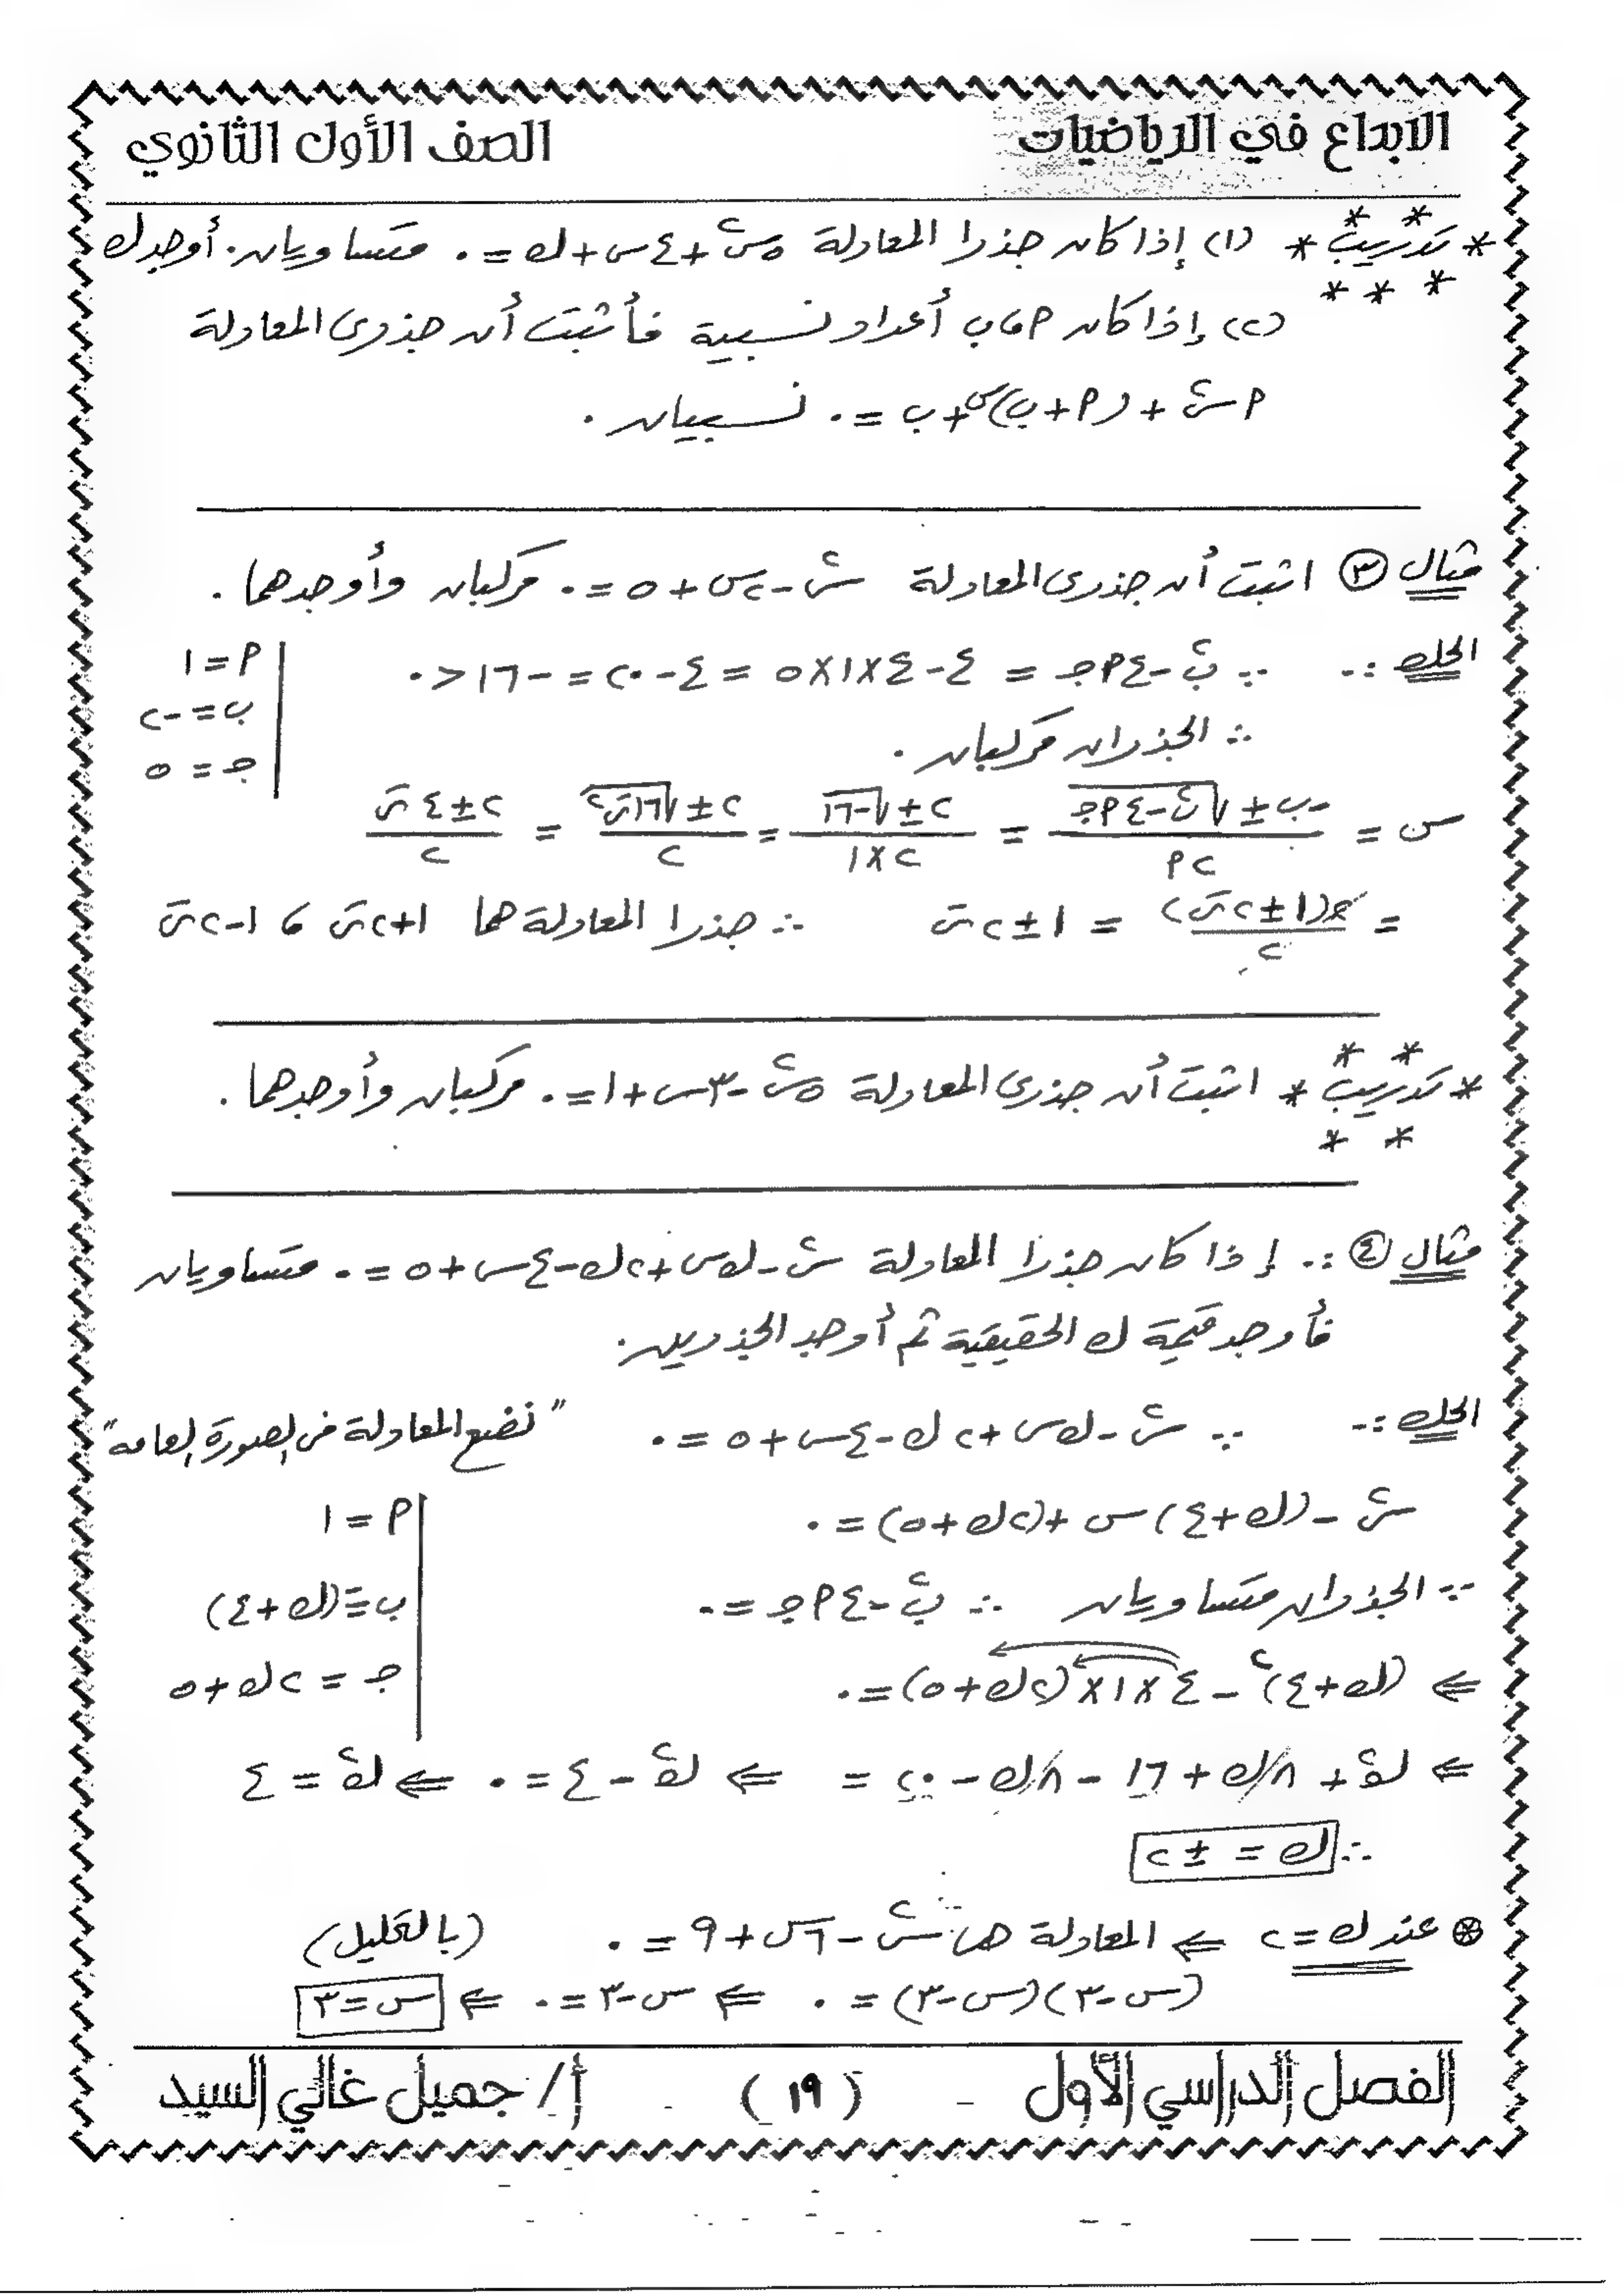 الابداع في الرياضيات الصف الأول الثانوي
* تدريب * (١) إذا كان جذرا المعادلة ٥س٢ + ٤س + ك = ٠ متساويان. أوجد ك
(٢) إذا كان م، ب أعداد نسبية فأثبت أن جذرى المعادلة
م س٢ + (م + ب)س + ب = ٠ نسبيان.
مثال ٣ اثبت أن جذرى المعادلة س٢ - ٢س + ٥ = ٠ مركبان وأوجدهما.
الحل :- ∵ ب٢ - ٤م جـ = ٤ - ٤×١×٥ = ٤ - ٢٠ = -١٦ < ٠
م = ١
ب = -٢
جـ = ٥
∴ الجذران مركبان.
س = (-ب ± √(ب٢ - ٤م جـ)) / ٢م = (٢ ± √-١٦) / ٢×١ = (٢ ± √١٦ت٢) / ٢ = (٢ ± ٤ت) / ٢
= ٢(١ ± ٢ت) / ٢ = ١ ± ٢ت ∴ جذرا المعادلة هما ١+٢ت ، ١-٢ت
* تدريب * اثبت أن جذرى المعادلة ٥س٢ - ٣س + ١ = ٠ مركبان وأوجدهما.
مثال ٤ :. إذا كان جذرا المعادلة س٢ - ك س + ٢ك - ٤س + ٥ = ٠ متساويان
فأوجد قيمة ك الحقيقية ثم أوجد الجذرين.
الحل :- ∵ س٢ - ك س + ٢ك - ٤س + ٥ = ٠ "نضع المعادلة فى الصورة العامة"
س٢ - (ك + ٤) س + (٢ك + ٥) = ٠
م = ١
∵ الجذران متساويان ∴ ب٢ - ٤م جـ = ٠
ب = -(ك + ٤)
⇐ (ك + ٤)٢ - ٤×١×(٢ك + ٥) = ٠
جـ = ٢ك + ٥
⇐ ك٢ + ٨ك + ١٦ - ٨ك - ٢٠ = ⇐ ك٢ - ٤ = ٠ ⇐ ك٢ = ٤
∴ ك = ± ٢
⊛ عند ك = ٢ ⇐ المعادلة هى س٢ - ٦س + ٩ = ٠ (بالتحليل)
(س - ٣)(س - ٣) = ٠ ⇐ س - ٣ = ٠ ⇐ س = ٣
الفصل الدراسي الأول ( ١٩ ) أ/ جميل غالي السيد